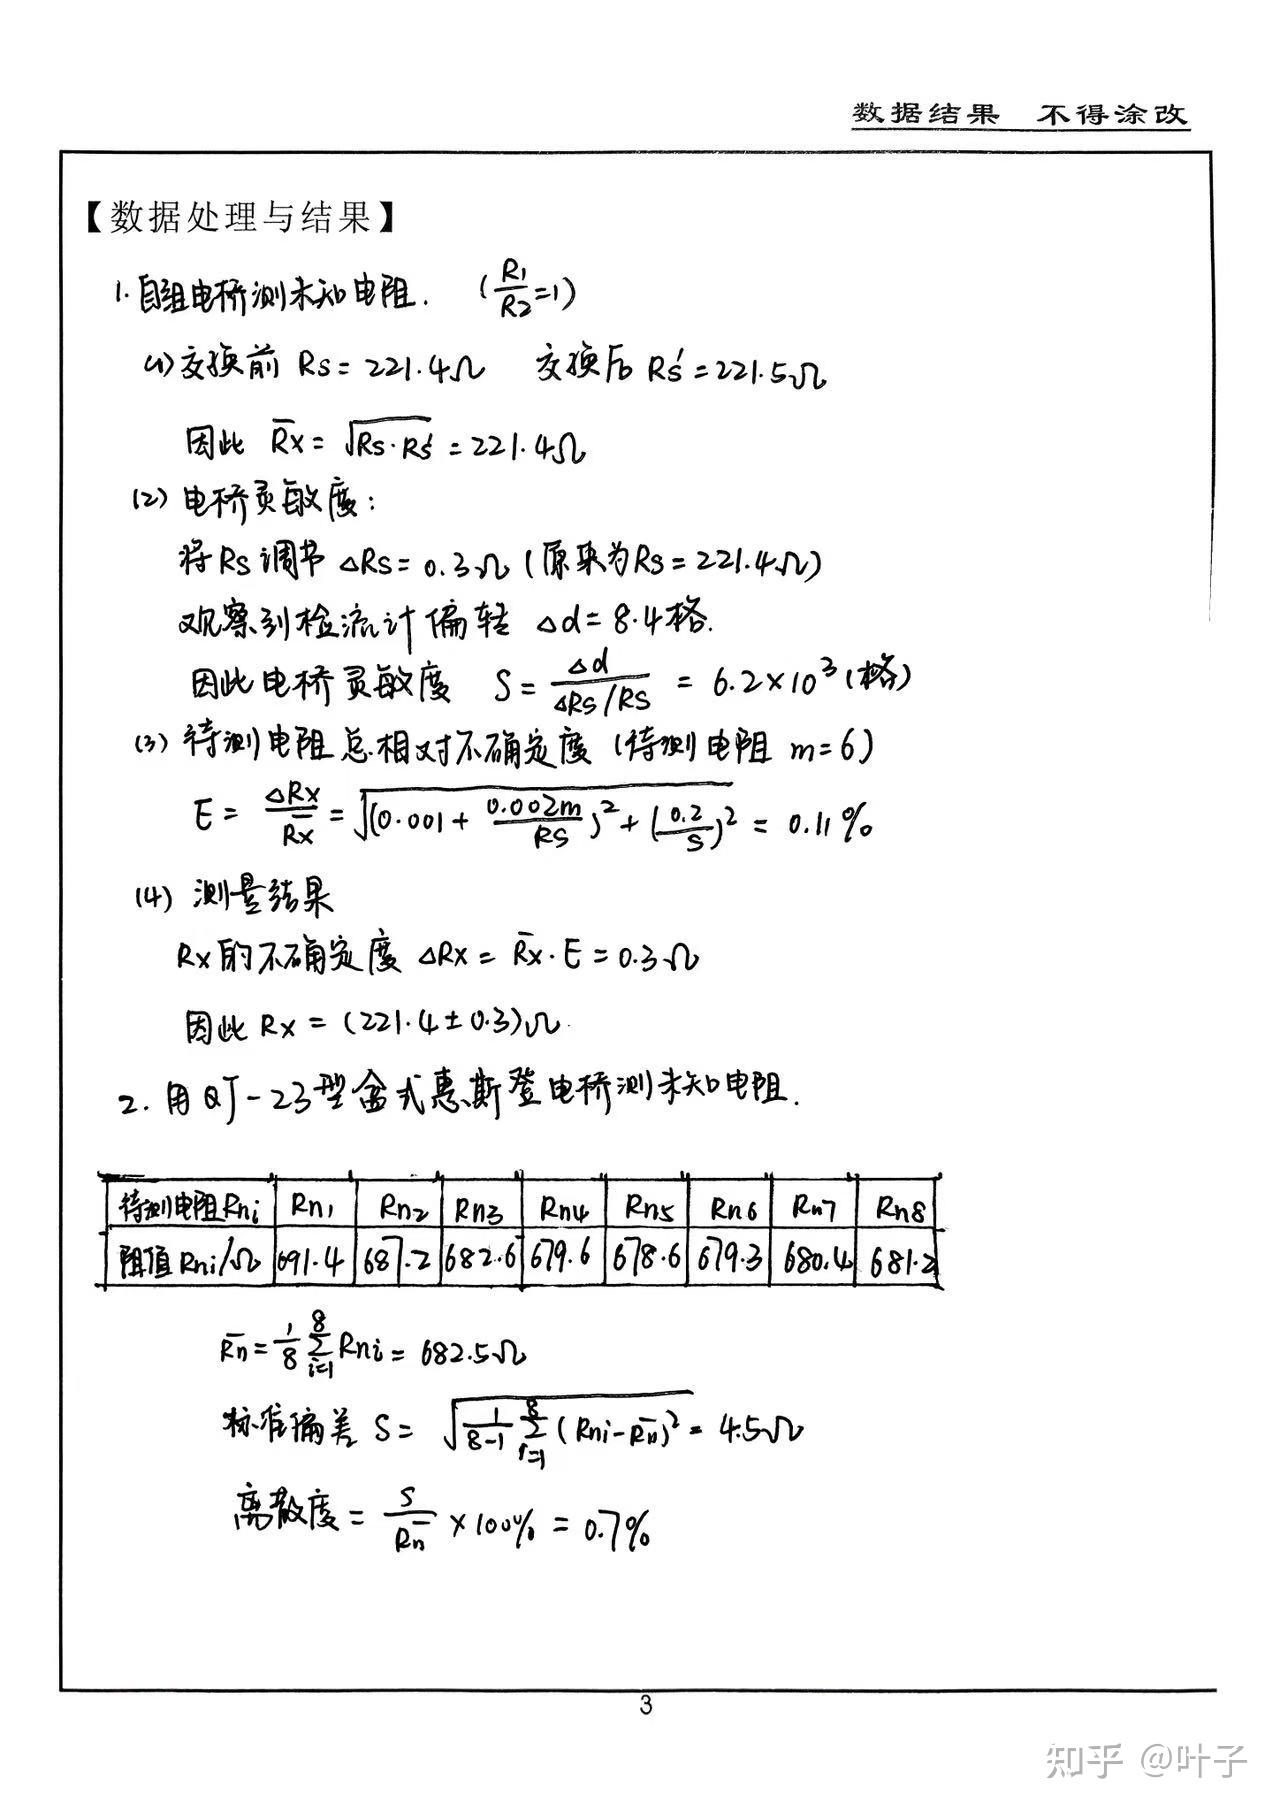 数据结果 不得涂改
【数据处理与结果】
1.自组电桥测未知电阻. (R1/R2=1)
(1)交换前 Rs=221.4Ω 交换后 Rs'=221.5Ω
因此 R̄x=√(Rs·Rs')=221.4Ω
(2) 电桥灵敏度:
将Rs调节 △Rs=0.3Ω(原来为Rs=221.4Ω)
观察到检流计偏转 △d=8.4格.
因此电桥灵敏度 S=△d/(△Rs/RS)=6.2×10³(格)
(3) 待测电阻总相对不确定度(待测电阻 m=6)
E=△Rx/R̄x=√((0.001+0.002m/RS)²+(0.2/S)²)=0.11%
(4) 测量结果
Rx的不确定度 △Rx=R̄x·E=0.3Ω
因此 Rx=(221.4±0.3)Ω.
2.用QJ-23型盒式惠斯登电桥测未知电阻.
待测电阻Rni Rn1 Rn2 Rn3 Rn4 Rn5 Rn6 Rn7 Rn8
阻值Rni/Ω 691.4 687.2 682.6 679.6 678.6 679.3 680.4 681.2
R̄n=1/8 ∑(i=1→8) Rni=682.5Ω
标准偏差 S=√(1/(8-1) ∑(i=1→8) (Rni-R̄n)²)=4.5Ω
离散度=S/R̄n×100%=0.7%
3
知乎 @叶子